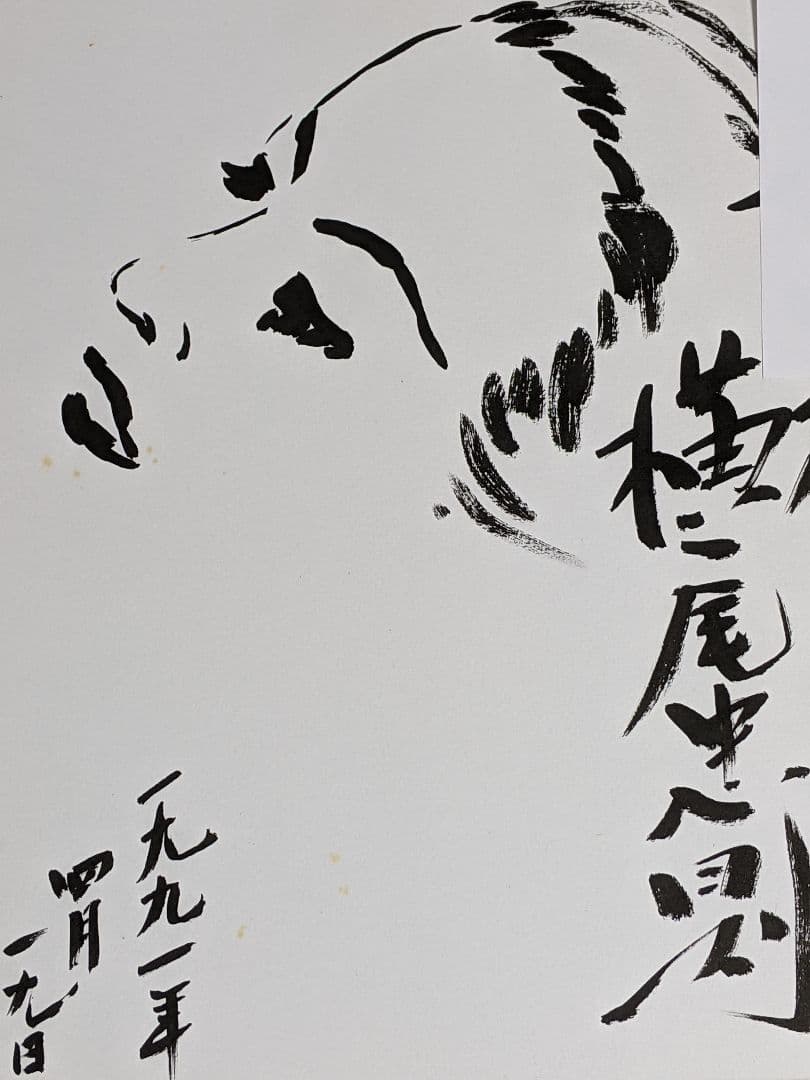 横尾忠則
一九九一年
四月
一九日